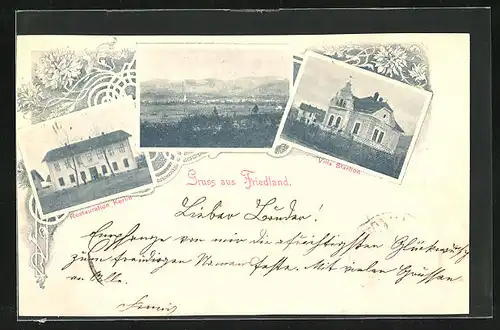 Restauration Kerlin
Villa Stephan
Gruss aus Friedland.
Lieber Bruder!
Empfange von mir die aufrichtigsten Glückwünsche
zum freudigen Namensfeste. Mit vielen Grüssen
an Alle.